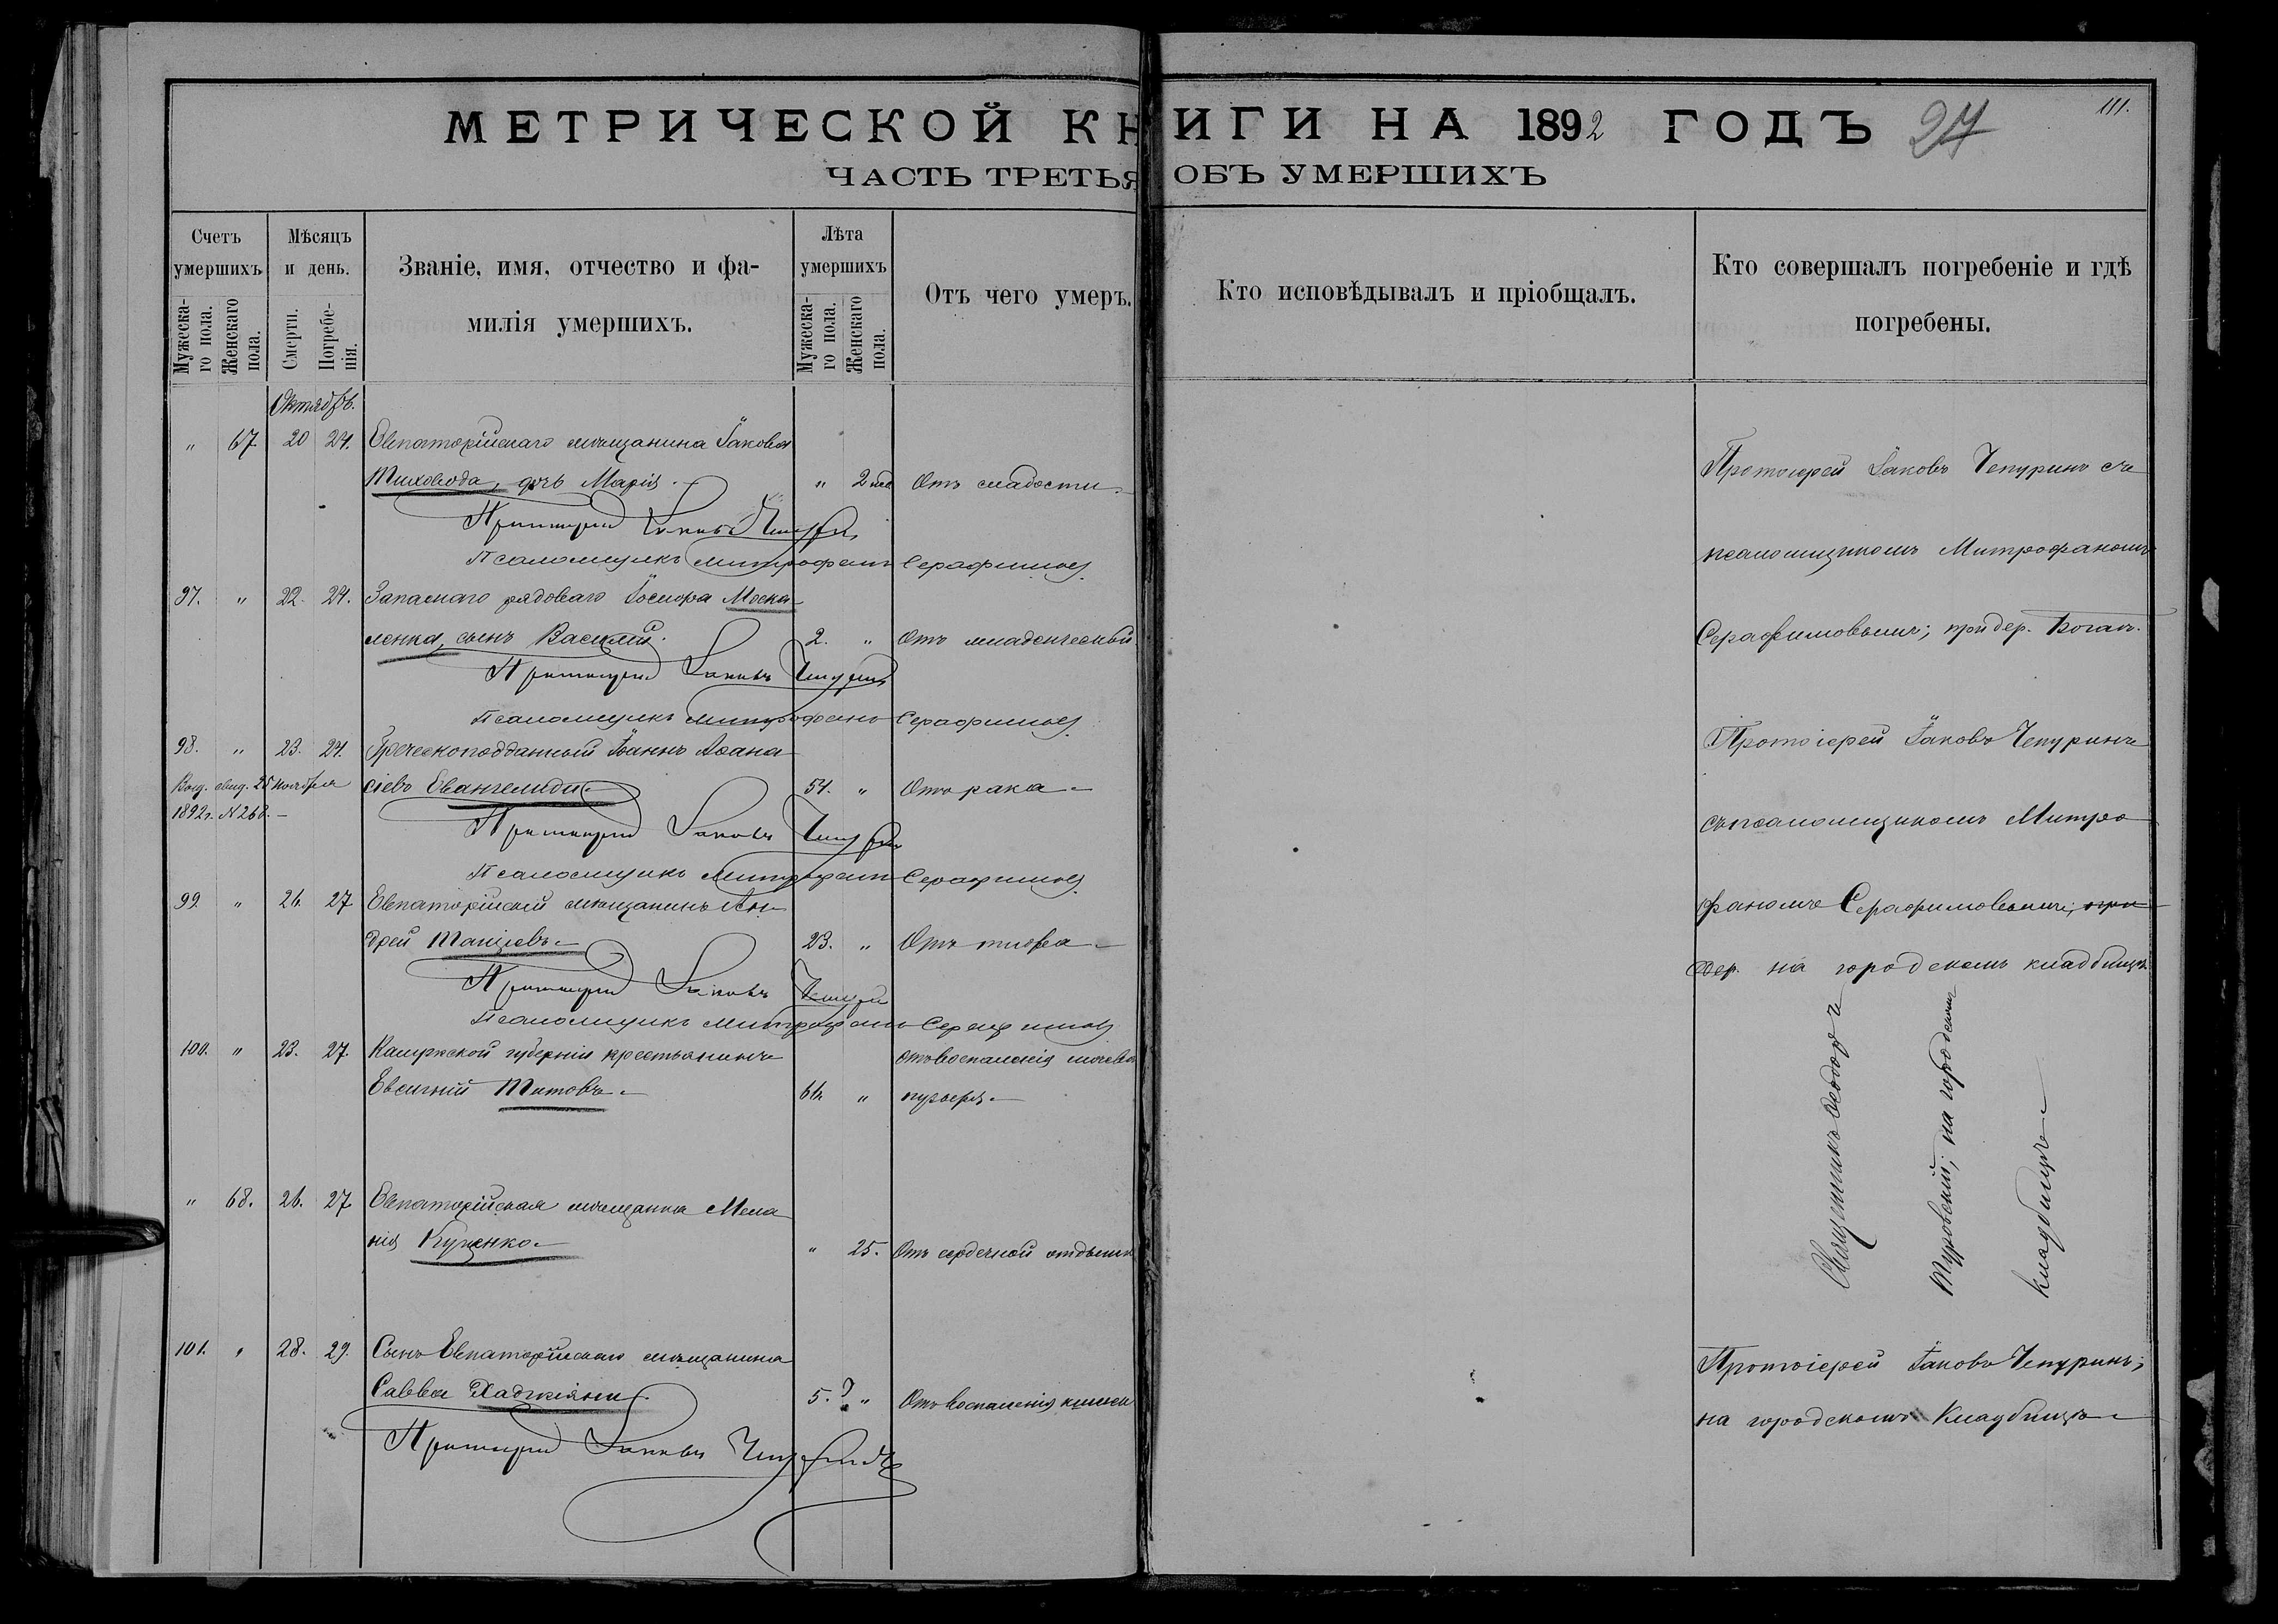 МЕТРИЧЕСКОЙ КНИГИ НА 1892 ГОДЪ 27 111.
ЧАСТЬ ТРЕТЬЯ ОБЪ УМЕРШИХЪ
Счетъ умершихъ
Мужеска-го пола.
Женскаго пола.
Мѣсяцъ и день.
Смерти.
Погребе-нія.
Званіе, имя, отчество и фа-
милія умершихъ.
Лѣта умершихъ
Мужеска-го пола.
Женскаго пола.
Отъ чего умеръ.
Кто исповѣдывалъ и пріобщалъ.
Кто совершалъ погребеніе и гдѣ
погребены.
Октябрь.
" 67. 20 24. Евпаторійскаго мѣщанина Іакова
Тиховода, дочь Марія. " 2 нед Отъ слабости
Протоіерей Іаковъ Чепурин
Псаломщикъ Митрофанъ Серафимов
Протоіерей Іаковъ Чепуринъ съ
псаломщикомъ Митрофаномъ
Серафимовымъ; при дер. Богай.
97. " 22. 24. Запаснаго рядоваго Іосифа Моска-
ленка, сынъ Василій. 2. " Отъ младенческой
Протоіерей Іаковъ Чепурин
Псаломщикъ Митрофанъ Серафимов
98. " 23. 24. Греческоподданный Іоаннъ Афана
сіевъ Евангелиди 54. " Отъ рака
Выд. свид. 25 ноября
1892 г. N 268.
Протоіерей Іаковъ Чепурин
Псаломщикъ Митрофанъ Серафимов
Протоіерей Іаковъ Чепуринъ
съ псаломщикомъ Митро
фаномъ Серафимовымъ; при
дер. на городскомъ кладбищѣ
99. " 26. 27. Евпаторійскій мѣщанинъ Ан
дрей 23. " Отъ тифа
Протоіерей Іаковъ Чепурин
Псаломщикъ Митрофанъ Серафимов
100. " 23. 27. Калужской губерніи крестьянинъ
Евсигній Титовъ 66. " отъ воспаленія мочева
пузыря
" 68. 26. 27. Евпаторійская мѣщанка Мела
нія Куценко " 25. Отъ сердечной отдышки
Священникъ Ѳеодоръ
Туровскій; на городскомъ
кладбищѣ
101. " 28. 29. Сынъ Евпаторійскаго мѣщанина
Савва Хаджіяни 5. ? " Отъ воспаленія кишекъ
Протоіерей Іаковъ Чепуринъ
Протоіерей Іаковъ Чепуринъ;
на городскомъ Кладбищѣ